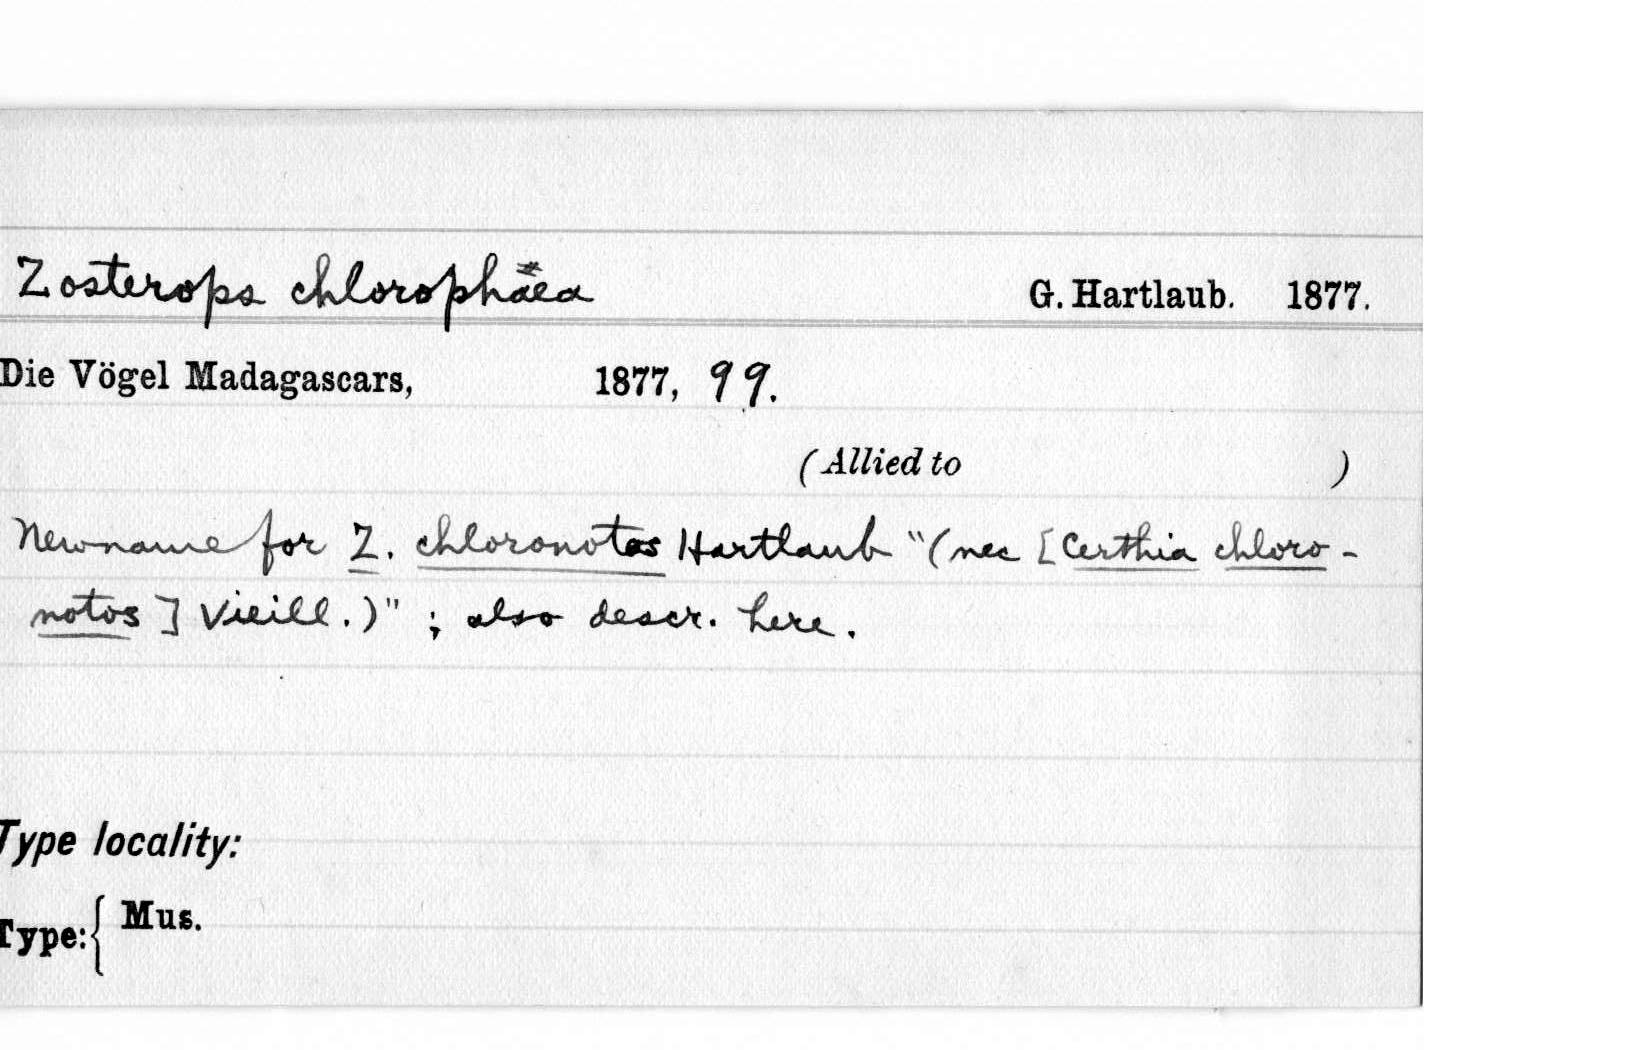 Zosterops chlorophaea G. Hartlaub. 1877.
Die Vögel Madagascars, 1877, 99.
(Allied to )
New name for Z. chloronotos Hartlaub "(nec [Certhia chloro-
notos] Vieill.)" ; also descr. here.
Type locality:
Type: { Mus.